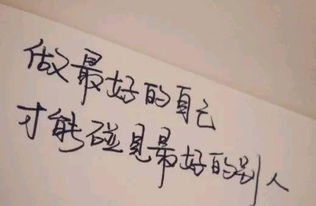 做最好的自己
才能碰见最好的别人